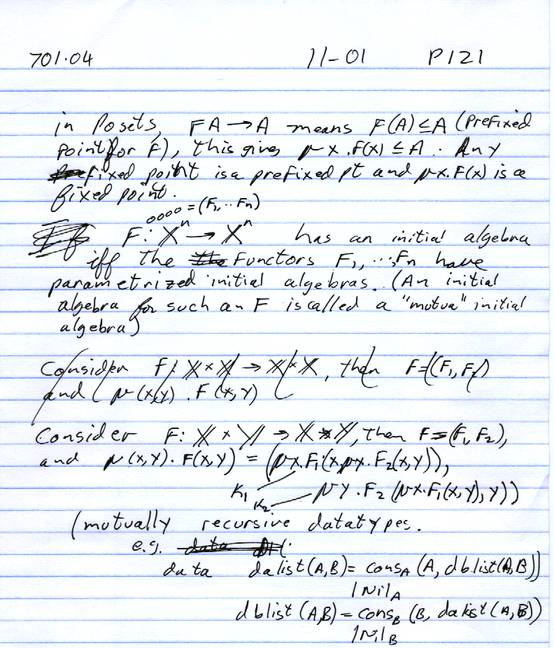 701.04 11-01 P121
in Posets, FA → A means F(A) ≤ A (prefixed
point for F), this gives μx.F(x) ≤ A. Any
fixed point is a prefixed pt and μx.F(x) is a
fixed point.
= (F₁, ‥ Fₙ)
F: 𝕏ⁿ → 𝕏ⁿ has an initial algebra
iff the Functors F₁, ‥. Fₙ have
parametrized initial algebras. (An initial
algebra for such an F is called a "mutua" initial
algebra)
Consider F: 𝕏 × 𝕏 → 𝕏 × 𝕏, then F = (F₁, F₂)
and μ(x,y). F(x,y)
Consider F: 𝕏 × 𝕐 → 𝕏 × 𝕐, then F = (F₁, F₂),
and μ(x,y). F(x,y) = (μx.F₁(x, μy.F₂(x,y)),
K₁
K₂ μy.F₂(μx.F₁(x,y), y))
(mutually recursive datatypes.
e.g. data
data dalist(A,B) = consA (A, dblist(A,B))
| NilA
dblist(A,B) = consB (B, dalist(A,B))
| NilB